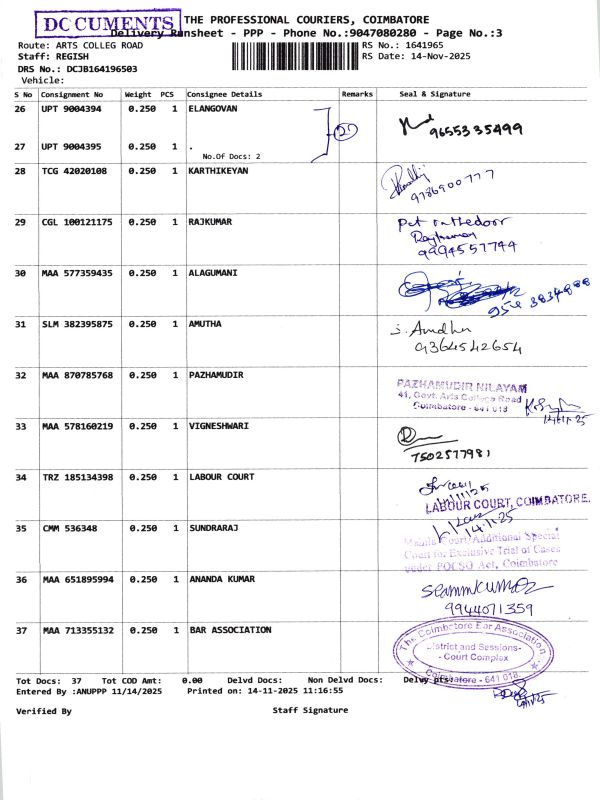 DOCUMENTS
THE PROFESSIONAL COURIERS, COIMBATORE
Delivery Runsheet - PPP - Phone No.:9047080280 - Page No.:3
Route: ARTS COLLEG ROAD
RS No.: 1641965
Staff: REGISH
RS Date: 14-Nov-2025
DRS No.: DCJB164196503
Vehicle:
S No Consignment No Weight PCS Consignee Details Remarks Seal & Signature
26 UPT 9004394 0.250 1 ELANGOVAN
9655335499
27 UPT 9004395 0.250 1 .
No.Of Docs: 2
28 TCG 42020108 0.250 1 KARTHIKEYAN
9786900777
29 CGL 100121175 0.250 1 RAJKUMAR Put on the door
Rajkumar
9994557744
30 MAA 577359435 0.250 1 ALAGUMANI
31 SLM 382395875 0.250 1 AMUTHA S. Amudha
9364542654
32 MAA 870785768 0.250 1 PAZHAMUDIR PAZHAMUDIR NILAYAM
41, Govt. Arts College Road
Coimbatore - 641 018
14/11/25
33 MAA 578160219 0.250 1 VIGNESHWARI
7502577981
34 TRZ 185134398 0.250 1 LABOUR COURT
14/11/25
LABOUR COURT, COIMBATORE.
35 CMM 536348 0.250 1 SUNDRARAJ
14.11.25
Mahila Court/Additional Special
Court for Exclusive Trial of Cases
under POCSO Act, Coimbatore
36 MAA 651895994 0.250 1 ANANDA KUMAR
9944071359
37 MAA 713355132 0.250 1 BAR ASSOCIATION The Coimbatore Bar Association
District and Sessions-
- Court Complex
Coimbatore - 641 018
Tot Docs: 37 Tot COD Amt: 0.00 Delvd Docs: Non Delvd Docs: Delvy pts:
Entered By :ANUPPP 11/14/2025 Printed on: 14-11-2025 11:16:55
Verified By Staff Signature